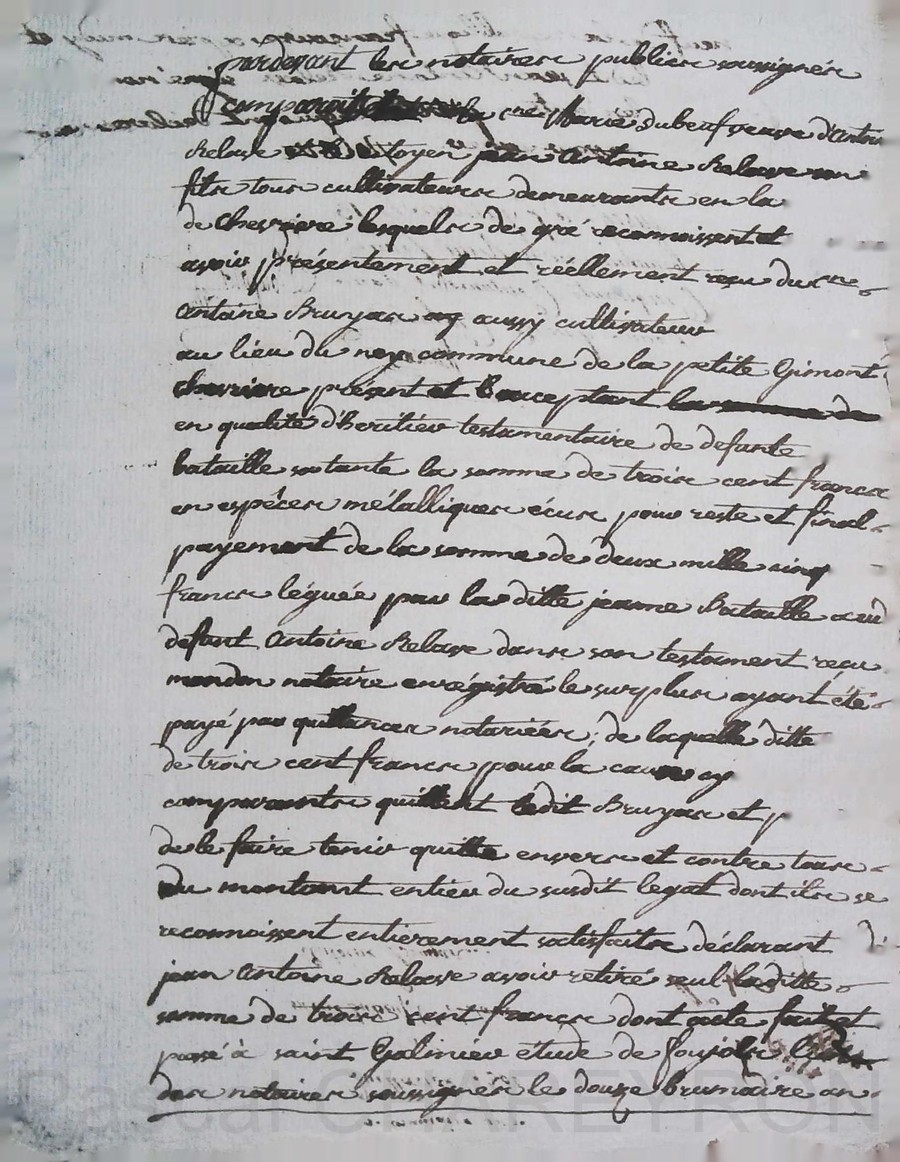 pardevant les notaires publics soussignés
comparoit la cne Marie dubeuf veuve d'antoi
Relave citoyen jean antoine Relave son
fils tous cultivateurs demeurants en la
de chevriere lesquels de gré reconnoissent et
avoir présentement et réellement reçu du cne
antoine Bruyas aussy cultivateur
au lieu du nay commune de la petite Gimont
chevriere présent et acceptant la somme de
en qualité d'heritier testamentaire de defunte
bataille la somme de trois cent francs
en espéces métalliques écus pour reste et final
payement de la somme de deux mille cinq
francs léguée par la ditte jeanne Bataille aud
defunt antoine Relave dans son testament reçu
mondon notaire enrégistré le surplus ayant été
payé par quittances notariées ; de laquelle ditte
de trois cent francs pour la cause
comparants quittent ledit Bruyas et p
de le faire tenir quitte envers et contre tous
du montant entier du susdit legat dont ils se
reconnoissent entierement satisfaits déclarant
jean antoine Relave avoir retiré seul la ditte
somme de trois cent francs dont acte fait et
passé à saint Galmier etude de
des notaires soussignés le douze brumaire an
Pascal CHAREYRON